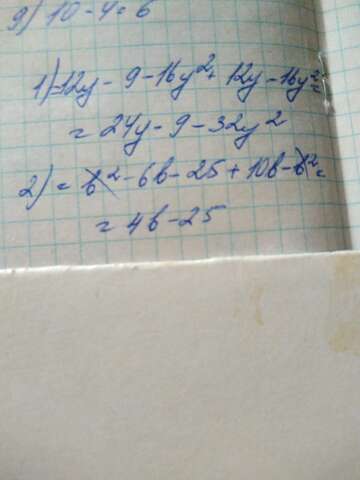 9) 10-4=6
1)=12y-9-16y²+12y-16y²=
=24y-9-32y²
2)=b²-6b-25+10b-b²=
=4b-25